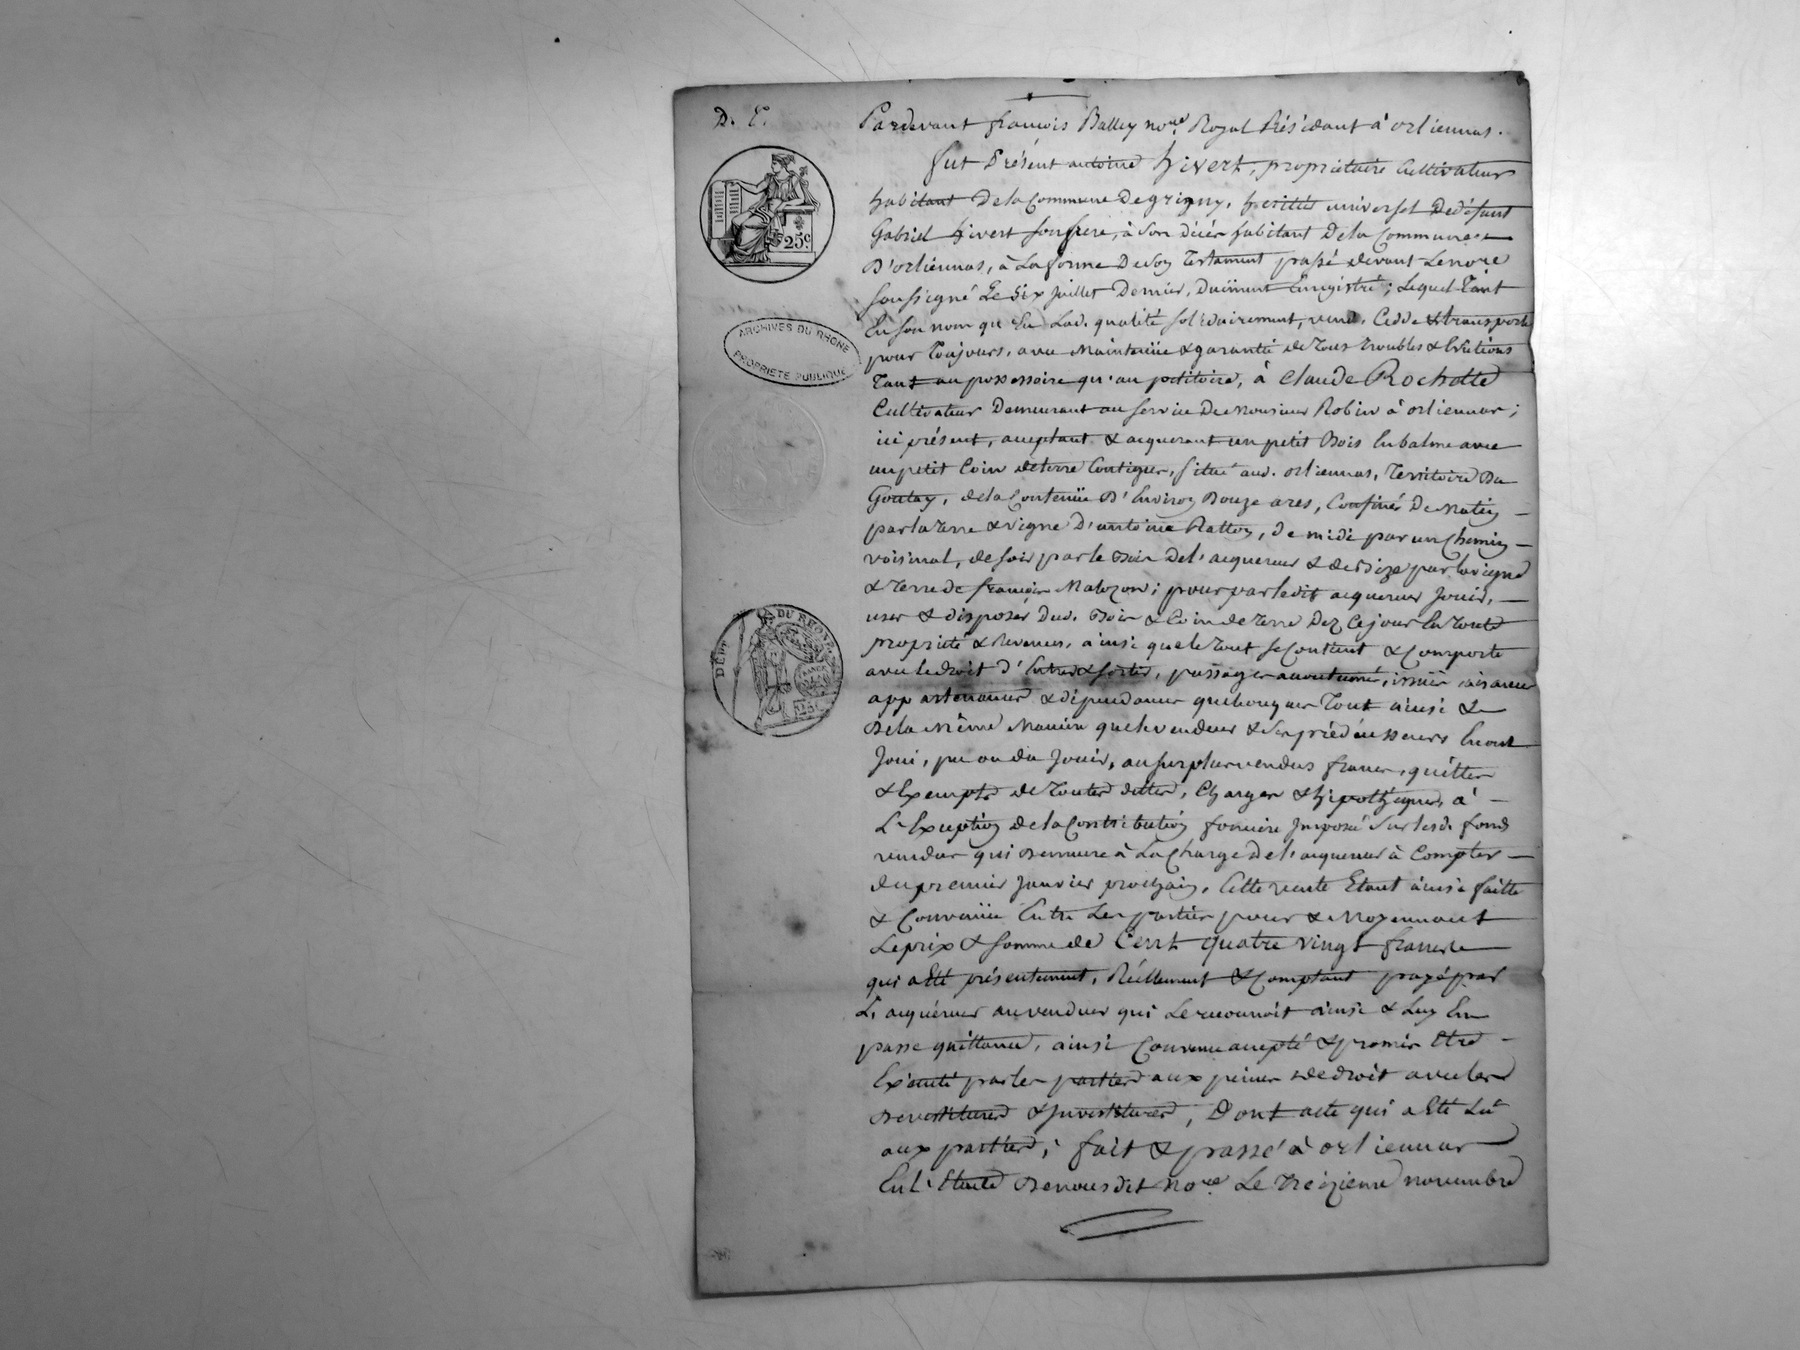 D. E.
Pardevant francois Balley no.re Royal Résidant à orliennas.
fut Présent antoine hivert, propriétaire Cultivateur
habitant De la Commune De grigny, héritier universel De défunt
Gabriel hivert son frere, à Son décès habitant De la Commune
D'orliennas, à La forme De Son Testament passé devant Le no.re
soussigné Le Six Juillet Dernier, Duëment Enregistré; Lequel Tant
En son nom qu'En Lad. qualité solidairement, vend, Cedde & transporte
pour Toujours, avec Maintenüe & garantie de Tous troubles & Evictions
Tant au possessoire qu'au petitoire, à Claude Rochette
Cultivateur Demeurant au service De Monsieur Robin à orliennas;
ici présent, aceptant & acquerant un petit Bois En balme avec
un petit Coin de terre Contigue, situé aud. orliennas, Territoire Du
Goutay, de la Contenüe D'Environ Douze ares, Confinés De Matin
par la Terre & vigne D'antoine Ratton, de midi par un Chemin
voisinal, de soir par le Bois De l'acquereur & de Bize par la vigne
& Terre de françois Malozon; pour par ledit acquereur Jouir,
user & disposer Dud. Bois & Coin de Terre Dez Ce jour En Toute
propriété & Revenus, ainsi que le Tout se Contient & Comporte
avec le droit d'Entrées & sorties, passages accoutumés, issües aisances
appartenances & dépendances quelconques Tout ainsi &
De la Même Maniere que le vendeur & Ses prédécesseurs En ont
Joui, pu ou du Jouir, au surplus vendus francs, quittes
& Exempts de Toutes dettes, Charges & hipothèques, à
L'Exeption de la Contribution fonciere Imposé Sur lesd. fonds
vendus qui Demeure à La Charge De l'acquereur à Compter
du premier Janvier prochain. Cette vente Etant ainsi faitte
& Convenüe Entre Les parties pour & Moyennant
Le prix & somme de Cent quatre vingt francs
qui a Eté présentement, Réellement & Comptant payé par
L'acquéreur au vendeur qui Le reconnoit ainsi & Luy En
passe quittance, ainsi Convenu acepté & promis Etre
Exécuté par les parties aux peines de droit avec les
Devestitures & Investitures, Dont acte qui a Eté Lu
aux parties; fait & passé à orliennas
En L'Etude De nous dit no.re Le Treizieme novembre
25c.
ARCHIVES DU RHONE
PROPRIETE PUBLIQUE
DEPT DU RHONE